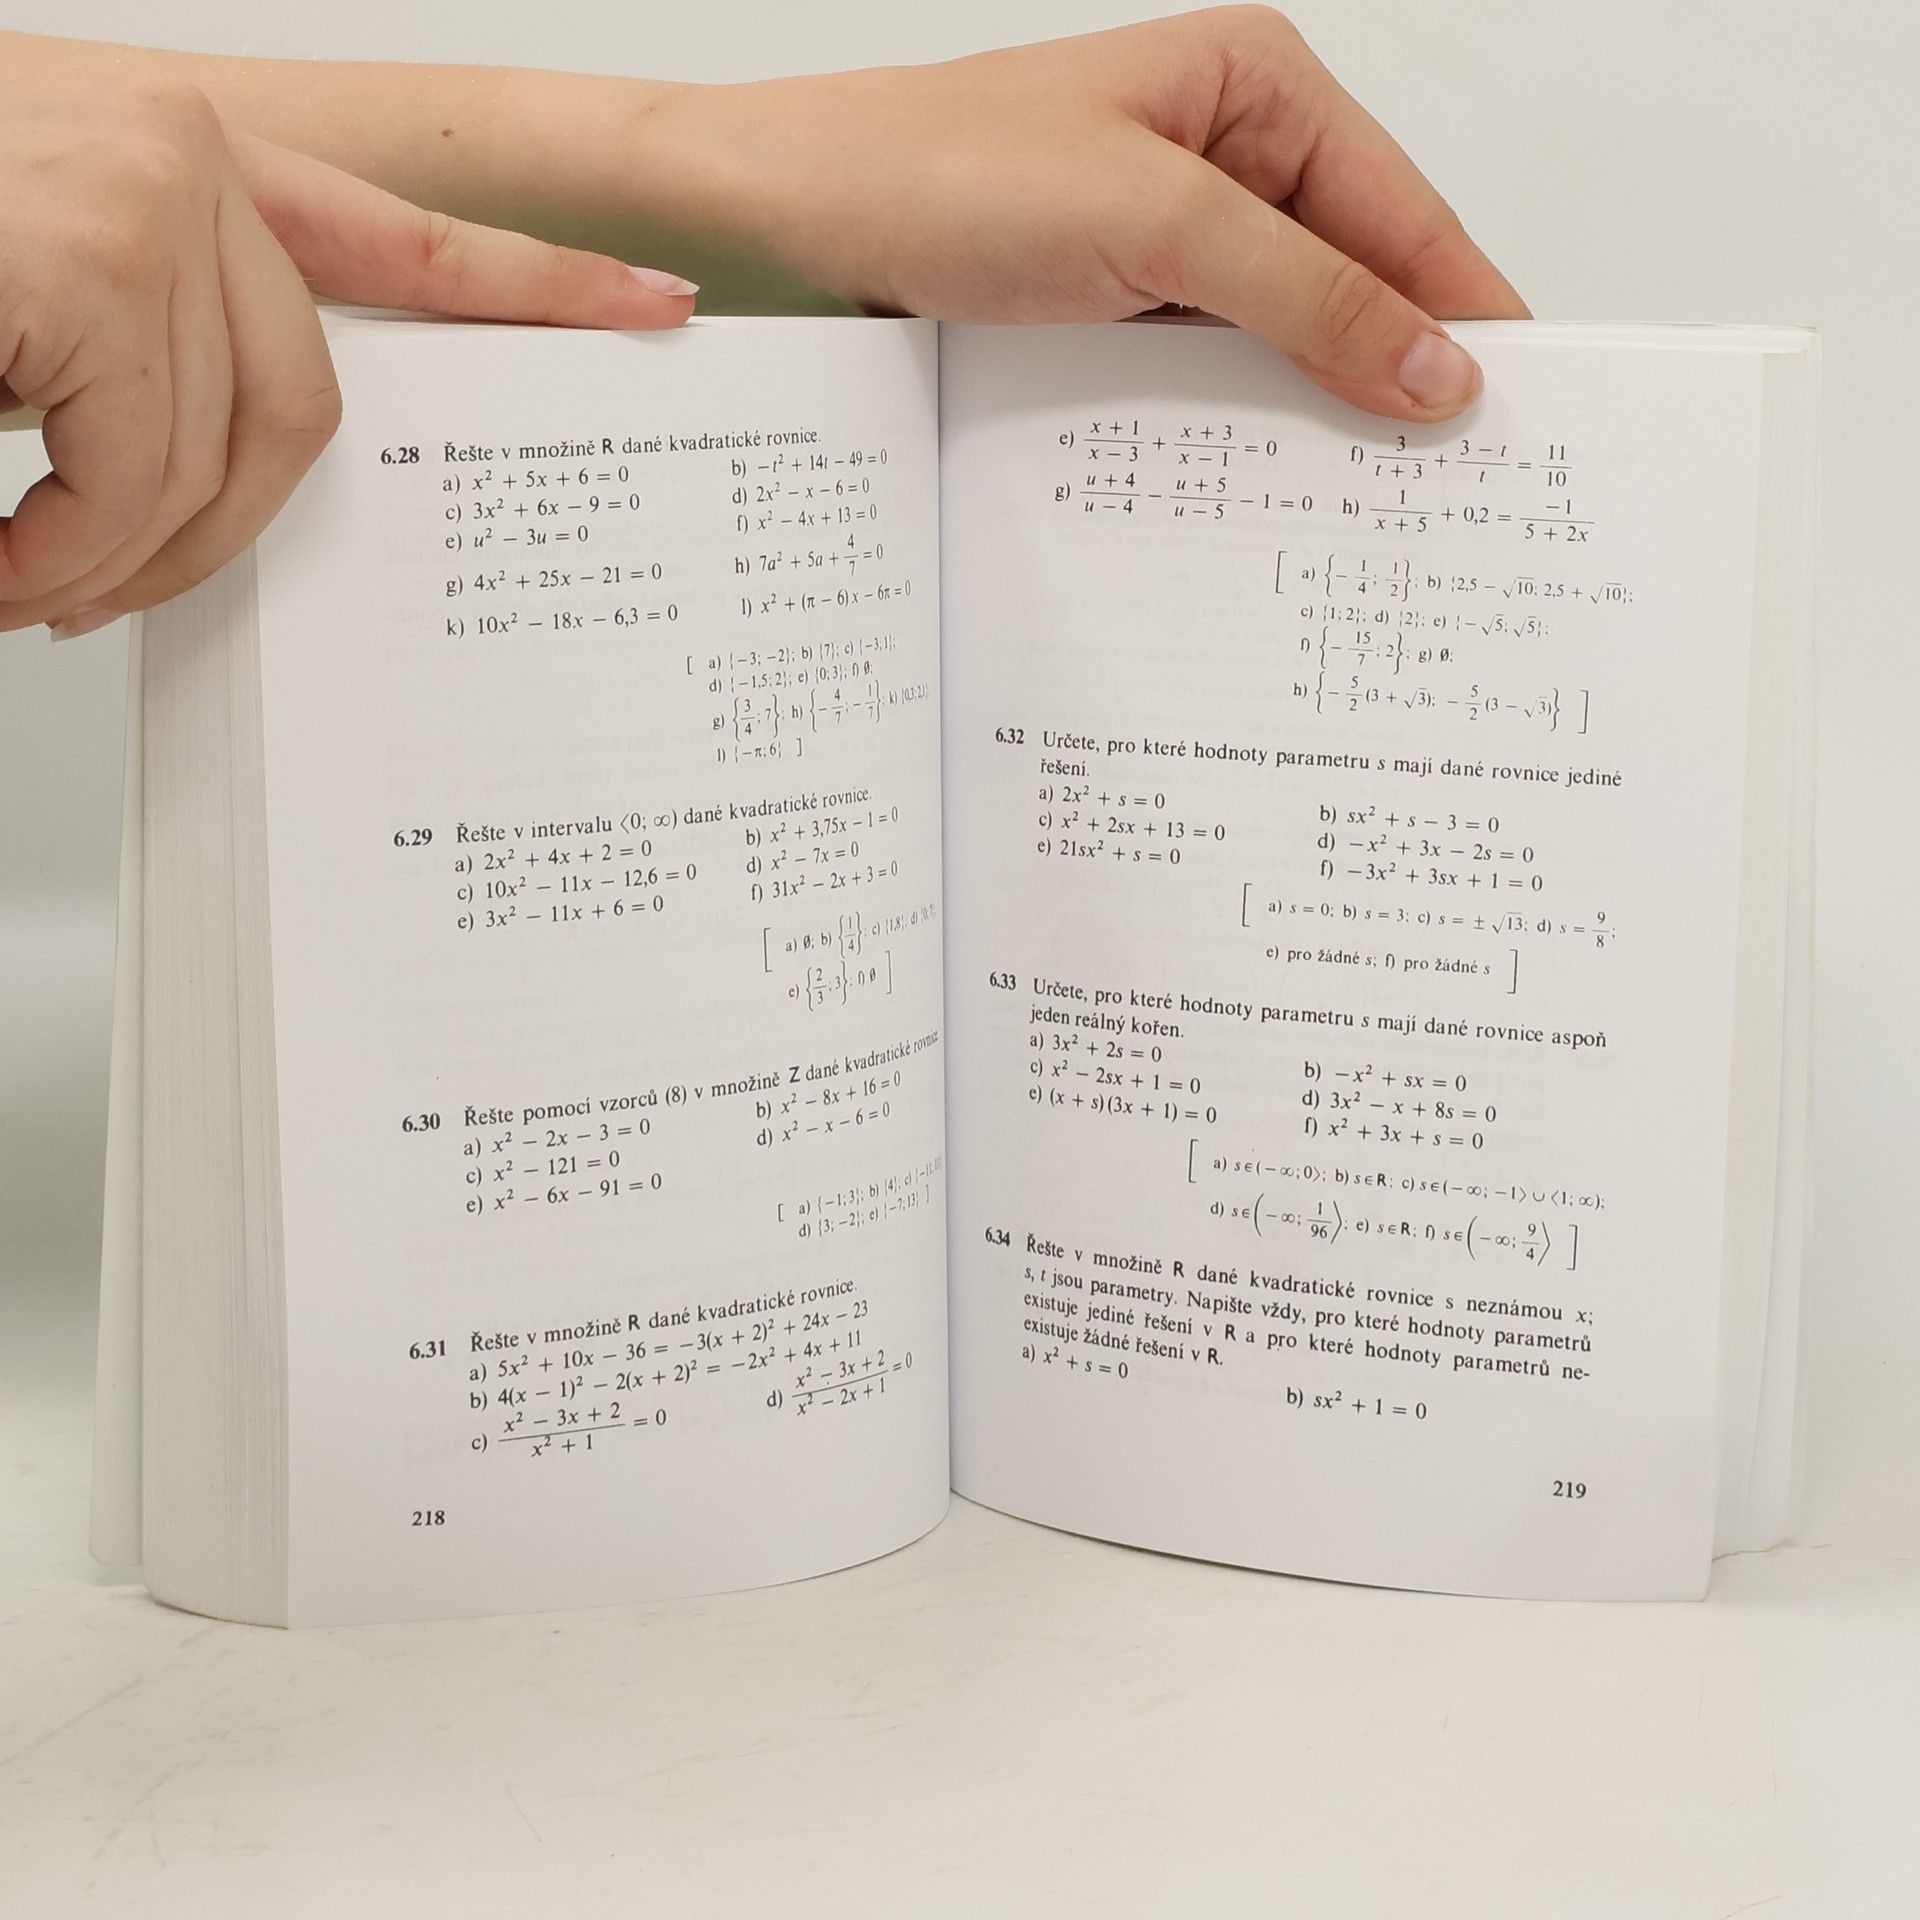 6.28 Řešte v množině R dané kvadratické rovnice.
a) x² + 5x + 6 = 0 b) −t² + 14t − 49 = 0
c) 3x² + 6x − 9 = 0 d) 2x² − x − 6 = 0
e) u² − 3u = 0 f) x² − 4x + 13 = 0
g) 4x² + 25x − 21 = 0 h) 7a² + 5a + 4/7 = 0
k) 10x² − 18x − 6,3 = 0 l) x² + (π − 6)x − 6π = 0
[ a) {−3; −2}; b) {7}; c) {−3; 1};
d) {−1,5; 2}; e) {0; 3}; f) ∅;
g) {3/4; 7}; h) {−4/7; −1/7}; k) {0,3; 2,1};
l) {−π; 6} ]
6.29 Řešte v intervalu ⟨0; ∞) dané kvadratické rovnice.
a) 2x² + 4x + 2 = 0 b) x² + 3,75x − 1 = 0
c) 10x² − 11x − 12,6 = 0 d) x² − 7x = 0
e) 3x² − 11x + 6 = 0 f) 31x² − 2x + 3 = 0
[ a) ∅; b) {1/4}; c) {1,8}; d) {0; 7};
e) {2/3; 3}; f) ∅ ]
6.30 Řešte pomocí vzorců (8) v množině Z dané kvadratické rovnice
a) x² − 2x − 3 = 0 b) x² − 8x + 16 = 0
c) x² − 121 = 0 d) x² − x − 6 = 0
e) x² − 6x − 91 = 0
[ a) {−1; 3}; b) {4}; c) {−11; 11}
d) {3; −2}; e) {−7; 13} ]
6.31 Řešte v množině R dané kvadratické rovnice.
a) 5x² + 10x − 36 = −3(x + 2)² + 24x − 23
b) 4(x − 1)² − 2(x + 2)² = −2x² + 4x + 11
c) (x² − 3x + 2)/(x² + 1) = 0 d) (x² − 3x + 2)/(x² − 2x + 1) = 0
218
e) (x + 1)/(x − 3) + (x + 3)/(x − 1) = 0 f) 3/(t + 3) + (3 − t)/t = 11/10
g) (u + 4)/(u − 4) − (u + 5)/(u − 5) − 1 = 0 h) 1/(x + 5) + 0,2 = −1/(5 + 2x)
[ a) {−1/4; 1/2}; b) {2,5 − √10; 2,5 + √10};
c) {1; 2}; d) {2}; e) {−√5; √5};
f) {−15/7; 2}; g) ∅;
h) {−5/2(3 + √3); −5/2(3 − √3)} ]
6.32 Určete, pro které hodnoty parametru s mají dané rovnice jediné
řešení.
a) 2x² + s = 0 b) sx² + s − 3 = 0
c) x² + 2sx + 13 = 0 d) −x² + 3x − 2s = 0
e) 21sx² + s = 0 f) −3x² + 3sx + 1 = 0
[ a) s = 0; b) s = 3; c) s = ± √13; d) s = 9/8;
e) pro žádné s; f) pro žádné s ]
6.33 Určete, pro které hodnoty parametru s mají dané rovnice aspoň
jeden reálný kořen.
a) 3x² + 2s = 0 b) −x² + sx = 0
c) x² − 2sx + 1 = 0 d) 3x² − x + 8s = 0
e) (x + s)(3x + 1) = 0 f) x² + 3x + s = 0
[ a) s∈(−∞; 0⟩; b) s∈R; c) s∈(−∞; −1⟩ ∪ ⟨1; ∞);
d) s∈(−∞; 1/96⟩; e) s∈R; f) s∈(−∞; 9/4⟩ ]
6.34 Řešte v množině R dané kvadratické rovnice s neznámou x;
s, t jsou parametry. Napište vždy, pro které hodnoty parametrů
existuje jediné řešení v R a pro které hodnoty parametrů ne-
existuje žádné řešení v R.
a) x² + s = 0 b) sx² + 1 = 0
219